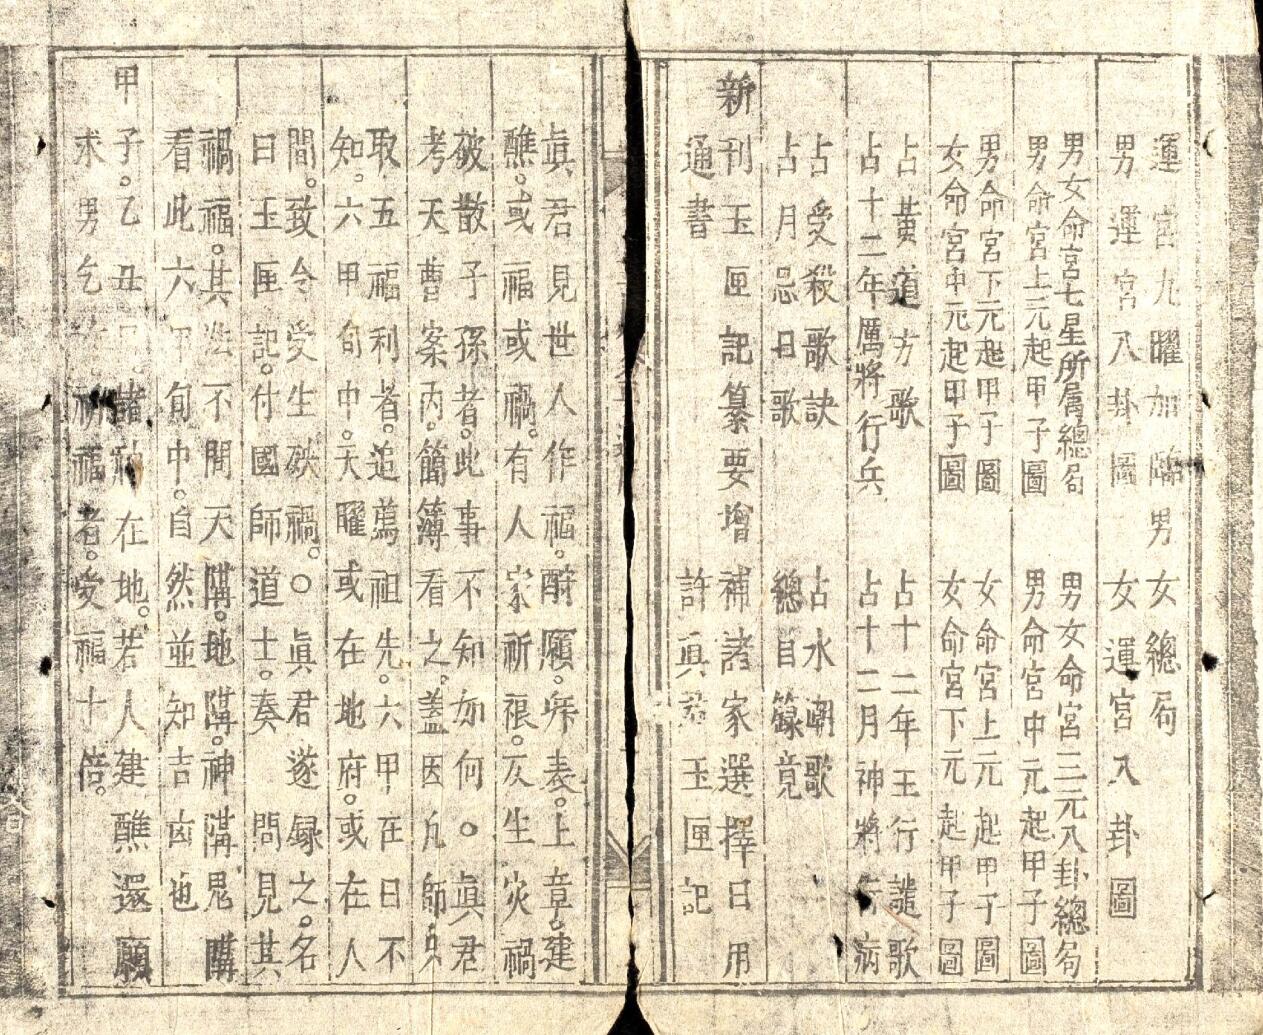 運宮九曜加臨男女總局
男運宮八卦圖 女運宮八卦圖
男女命宮七星所属總局 男女命宮三元八卦總局
男命宮上元起甲子圖 男命宮中元起甲子圖
男命宮下元起甲子圖 女命宮上元起甲子圖
女命宮中元起甲子圖 女命宮下元起甲子圖
占黃道方歌 占十二年王行譴歌
占十二年厲將行兵 占十二月神將行病
占受殺歌訣 占水潮歌
占月忌日歌 總目錄竟
新刊玉匣記纂要增補諸家選擇日用
通書 許眞君玉匣記
眞君見世人作福。酧願。奔表。上章。建
醮。或福或禍。有人家祈禳。反生災禍
破散子孫者。此事不知如何。○眞君
考天曹案內。簡簿看之。蓋因凡師
取五福利者。追薦祖先。六甲在日不
知。六甲旬中。天曜或在地府。或在人
間。致令受生殃禍。○眞君遂録之。名
曰玉匣記。付國師道士。奏問見其
禍福。其法不問天隣。地隣。神隣。鬼隣
看此六甲旬中。自然並知吉凶也
甲子。乙丑日。諸神在地。若人建醮還願
求男乞 祈福者。受福十倍。